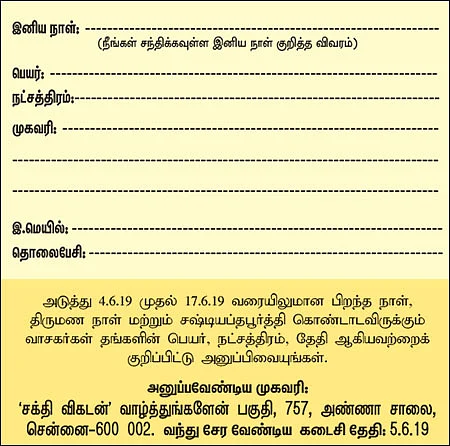 இனிய நாள்: ------------------------------------------------
(நீங்கள் சந்திக்கவுள்ள இனிய நாள் குறித்த விவரம்)
பெயர்: ------------------------------------------------
நட்சத்திரம்:------------------------------------------------
முகவரி: ------------------------------------------------
------------------------------------------------
------------------------------------------------
இ.மெயில்: ------------------------------------------------
தொலைபேசி: ------------------------------------------------
அடுத்து 4.6.19 முதல் 17.6.19 வரையிலுமான பிறந்த நாள்,
திருமண நாள் மற்றும் சஷ்டியப்தபூர்த்தி கொண்டாடவிருக்கும்
வாசகர்கள் தங்களின் பெயர், நட்சத்திரம், தேதி ஆகியவற்றைக்
குறிப்பிட்டு அனுப்பிவையுங்கள்.
அனுப்பவேண்டிய முகவரி:
‘சக்தி விகடன்’ வாழ்த்துங்களேன் பகுதி, 757, அண்ணா சாலை,
சென்னை-600 002. வந்து சேர வேண்டிய கடைசி தேதி: 5.6.19